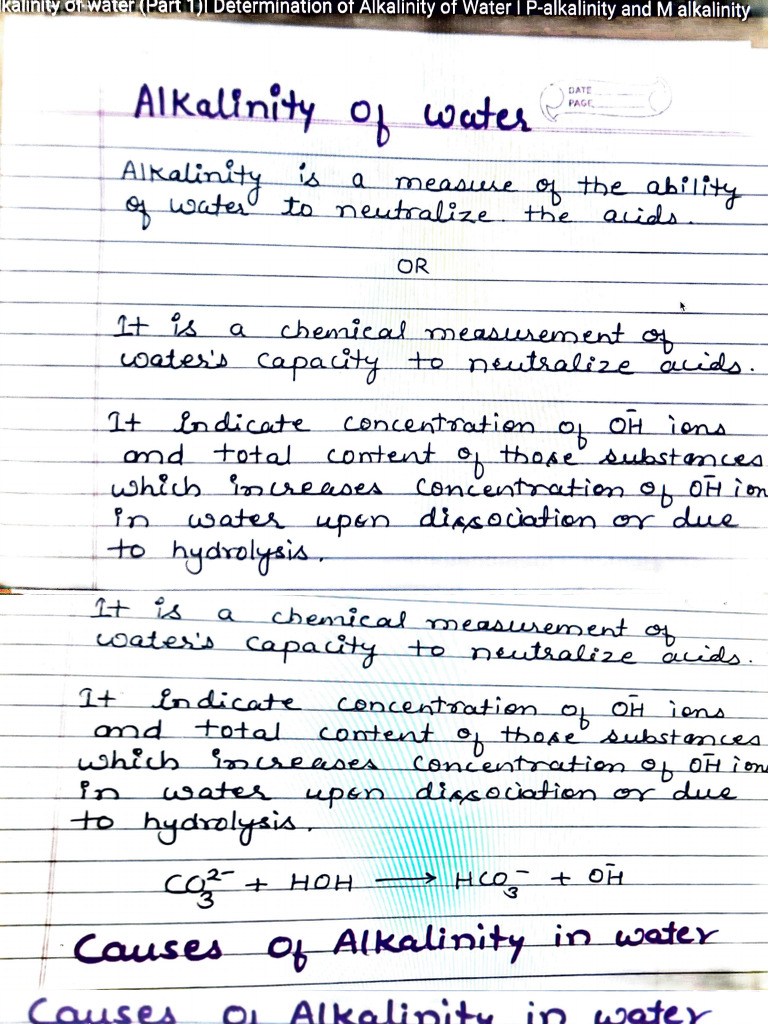 kalinity of water (Part 1)| Determination of Alkalinity of Water | P-alkalinity and M alkalinity
DATE
PAGE
Alkalinity of water
Alkalinity is a measure of the ability
of water to neutralize the acids.
OR
It is a chemical measurement of
water's capacity to neutralize acids.
It indicate concentration of OH̄ ions
and total content of those substances
which increases concentration of OH̄ ion
in water upon dissociation or due
to hydrolysis.
It is a chemical measurement of
water's capacity to neutralize acids.
It indicate concentration of OH̄ ions
and total content of those substances
which increases concentration of OH̄ ion
in water upon dissociation or due
to hydrolysis.
CO₃²⁻ + HOH ⟶ HCO₃⁻ + OH̄
Causes of Alkalinity in water
Causes of Alkalinity in water